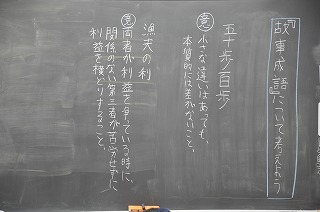 故事成語について考えよう
五十歩百歩
意 小さな違いはあっても、
本質的には差がないこと。
漁夫の利
意 両者が利益を争っている時に、
関係のない第三者が苦労せずに
利益を横どりすること。